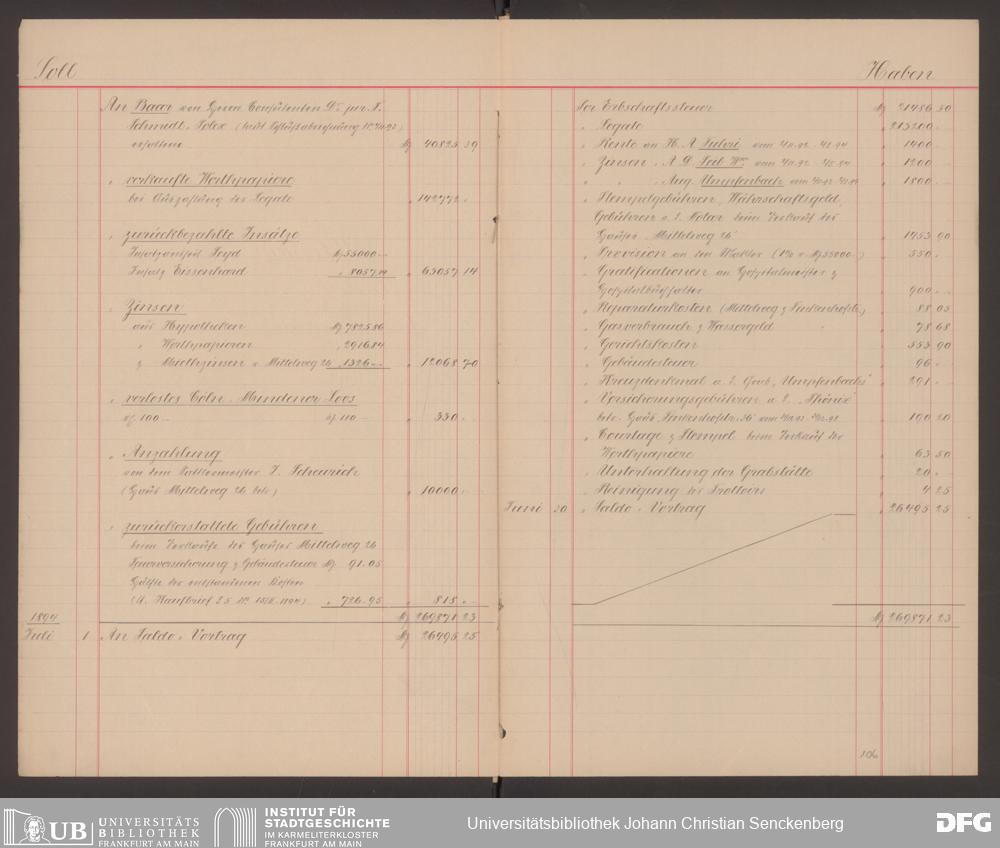 Soll
An Baar von Herrn Consulenten Dr. jur. F.
Schmidt-Polex
erhalten M 40825 39
" verkaufte Werthpapiere
bei Auszahlung der Legate " 142772 -
" zurückbezahlte Insätze
M 55000 -
Insatz Eissenhard " 8057.14 " 63057 14
" Zinsen
aus Hypotheken M 7825.86
" Werthpapieren " 2916.84
& Miethzinsen v. Mittelweg 26 " 1326 - " 12068 70
" verlostes Cöln-Mindener Loos
100 - 110 - " 330 -
" Anzahlung
von dem J. Scheurich
(Haus Mittelweg 26 betr.) " 10000 -
" zurückerstattete Gebühren
beim Verkaufe des Hauses Mittelweg 26
Feuerversicherung & Gebäudesteuer M 91.05
Hälfte der entstandenen Kosten
" 726.95 " 818 -
M 269871 23
1894
Juli 1 An Saldo-Vortrag M 26495 25
Haben
Per Erbschaftssteuer M 21486 50
" Legate " 213200 -
" Rente an " 1400 -
" Zinsen " 1200 -
" " " Aug. Umpfenbach " 1800 -
" Stempelgebühren, Währschaftsgeld,
Gebühren a. d. Notar beim Verkauf des
Hauses "Mittelweg 26" " 1453 90
" Provision an den Makler (1% v. M 55000 -) " 550 -
" Gratificationen an Hospitalmeister &
Hospitalbuchhalter " 900 -
" Reparaturkosten " 88 05
" Gasverbrauch & Wassergeld " 78 68
" Gerichtskosten " 553 90
" Gebäudesteuer " 96 -
" Kreuzdenkmal a. d. Grab "Umpfenbachs" " 291 -
" Versicherungsgebühren a. d. "Phönix"
" 190 20
" Courtage & Stempel beim Verkauf der
Werthpapiere " 63 50
" Unterhaltung der Grabstätte " 20 -
" Reinigung des Trottoirs " 4 25
Juni 30 " Saldo-Vortrag " 26495 25
M 269871 23
106
UB UNIVERSITÄTS
BIBLIOTHEK
FRANKFURT AM MAIN
INSTITUT FÜR
STADTGESCHICHTE
IM KARMELITERKLOSTER
FRANKFURT AM MAIN
Universitätsbibliothek Johann Christian Senckenberg
DFG